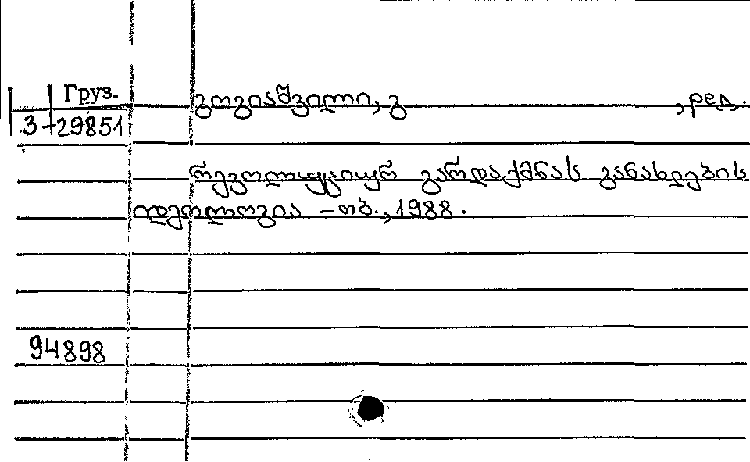 Груз.
3-29851
გოგიაშვილი, გ , ред.
რევოლუციურ გარდაქმნას განახლების
იდეოლოგია - თბ., 1988.
94898